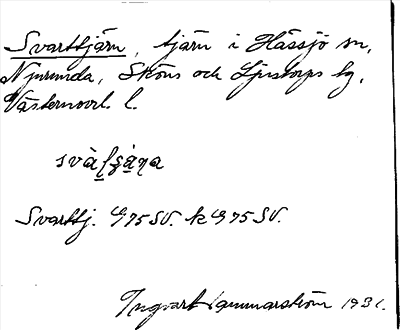 Svarttjärn, tjärn i Hässjö sn,
Njurunda, Sköns och Ljustorps tg,
Västernorrl. l.
Svarttj. G75SV. k G75SV.
Ingvart Gammarström 1931.